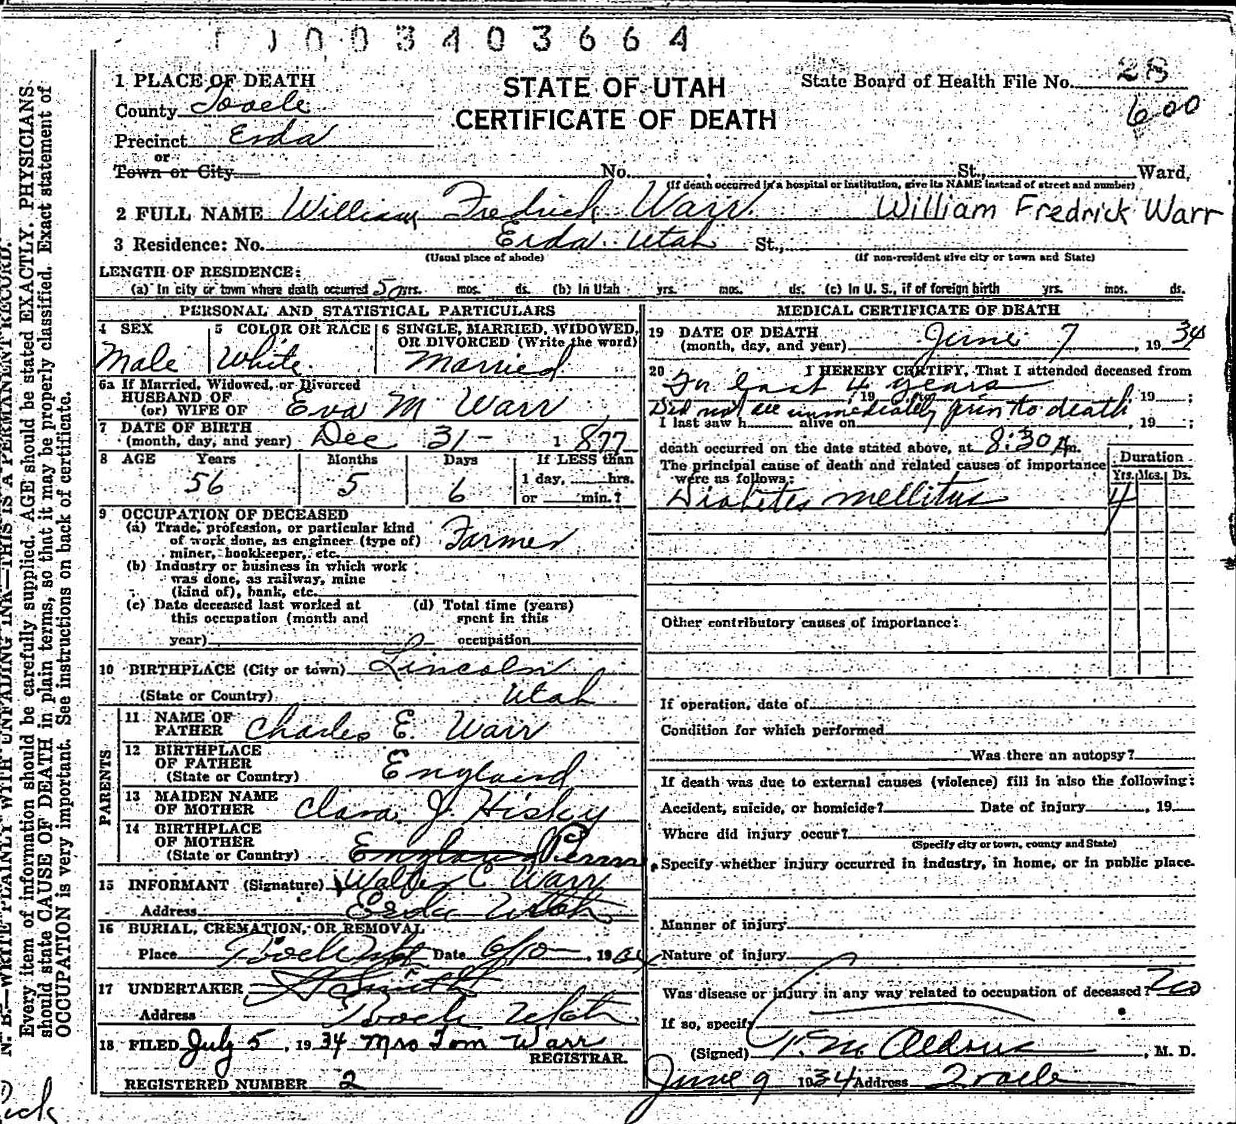 003403664
1 PLACE OF DEATH
STATE OF UTAH
State Board of Health File No. 28
County Tooele
CERTIFICATE OF DEATH
600
Precinct Erda
or
Town or City No. St., Ward,
(If death occurred in a hospital or institution, give its NAME instead of street and number)
2 FULL NAME William Fredrick Warr William Fredrick Warr
3 Residence: No. Erda Utah St.,
(Usual place of abode) (If non-resident give city or town and State)
LENGTH OF RESIDENCE:
(a) In city or town where death occurred yrs. mos. ds. (b) In Utah yrs. mos. ds. (c) In U. S., if of foreign birth yrs. mos. ds.
PERSONAL AND STATISTICAL PARTICULARS
4 SEX 5 COLOR OR RACE 6 SINGLE, MARRIED, WIDOWED,
OR DIVORCED (Write the word)
Male White Married
6a If Married, Widowed, or Divorced
HUSBAND OF
(or) WIFE OF Eva M Warr
7 DATE OF BIRTH
(month, day, and year) Dec 31- 1877
8 AGE Years Months Days If LESS than
1 day, hrs.
56 5 6 or min.?
9 OCCUPATION OF DECEASED
(a) Trade, profession, or particular kind
of work done, as engineer (type of)
miner, bookkeeper, etc. Farmer
(b) Industry or business in which work
was done, as railway, mine
(kind of), bank, etc.
(c) Date deceased last worked at (d) Total time (years)
this occupation (month and spent in this
year) occupation
10 BIRTHPLACE (City or town) Lincoln
(State or Country) Utah
PARENTS
11 NAME OF
FATHER Charles E. Warr
12 BIRTHPLACE
OF FATHER
(State or Country) England
13 MAIDEN NAME
OF MOTHER Clara J. Hisky
14 BIRTHPLACE
OF MOTHER
(State or Country) England Penn
15 INFORMANT (Signature) Walter C Warr
Address Erda Utah
16 BURIAL, CREMATION, OR REMOVAL
Place Date 6/10 1934
17 UNDERTAKER
Address Tooele Utah
18 FILED July 5, 1934 Mrs Tom Warr
REGISTRAR.
REGISTERED NUMBER 2
MEDICAL CERTIFICATE OF DEATH
19 DATE OF DEATH
(month, day, and year) June 7, 1934
20 I HEREBY CERTIFY, That I attended deceased from
For last 4 years, 19 , 19 ;
Did not see immediately prior to death
I last saw h alive on , 19 ;
death occurred on the date stated above, at 8:30 A m.
The principal cause of death and related causes of importance
were as follows:
Duration
Yrs. Mos. Ds.
Diabetes mellitus 4
Other contributory causes of importance:
If operation, date of
Condition for which performed
Was there an autopsy?
If death was due to external causes (violence) fill in also the following:
Accident, suicide, or homicide? Date of injury , 19
Where did injury occur?
(Specify city or town, county and State)
Specify whether injury occurred in industry, in home, or in public place.
Manner of injury
Nature of injury
Was disease or injury in any way related to occupation of deceased? no
If so, specify
(Signed) T. M. Aldous, M. D.
June 9 1934 Address Tooele
N. B.—WRITE PLAINLY WITH UNFADING INK—THIS IS A PERMANENT RECORD.
Every item of information should be carefully supplied. AGE should be stated EXACTLY. PHYSICIANS
should state CAUSE OF DEATH in plain terms, so that it may be properly classified. Exact statement of
OCCUPATION is very important. See instructions on back of certificate.